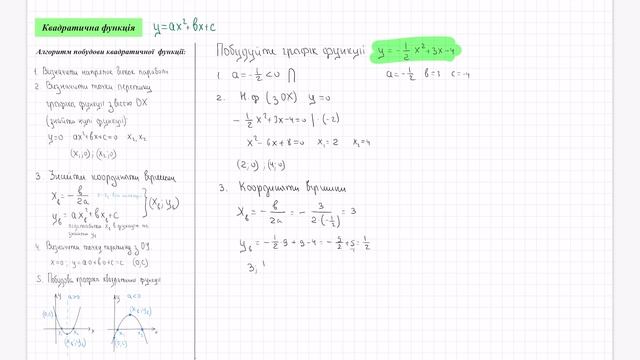 Квадратична функція y=ax²+bx+c
Алгоритм побудови квадратичної функції:
1. Визначити напрямок віток параболи
2. Визначити точки перетину
графіка функції з віссю OX
(знайти нулі функції)
y=0 ax²+bx+c=0 x₁, x₂
(x₁;0); (x₂;0)
3. Знайти координати вершини
xв = -b/2a
yв = axв²+bxв+c
(xв; yв)
підставити xв в функцію та
знайти yв
4. Визначити точку перетину з OY
x=0; y=a·0+b·0+c=c (0;c)
5. Побудова графіка квадратичної функції
y a>0
(0;c)
x₁ x₂ x
(xв; yв)
y a<0
(xв; yв)
x₁ x₂ x
(0;c)
Побудуйте графік функції y = -1/2 x²+3x-4
1. a=-1/2<0 ⋂
a=-1/2 b=3 c=-4
2. Н.ф (з OX) y=0
-1/2 x²+3x-4=0 |·(-2)
x²-6x+8=0 x₁=2 x₂=4
(2;0); (4;0)
3. Координати вершини
xв = -b/2a = -3/(2·(-1/2)) = 3
yв = -1/2·9+9-4 = -9/2+5=1/2
3;